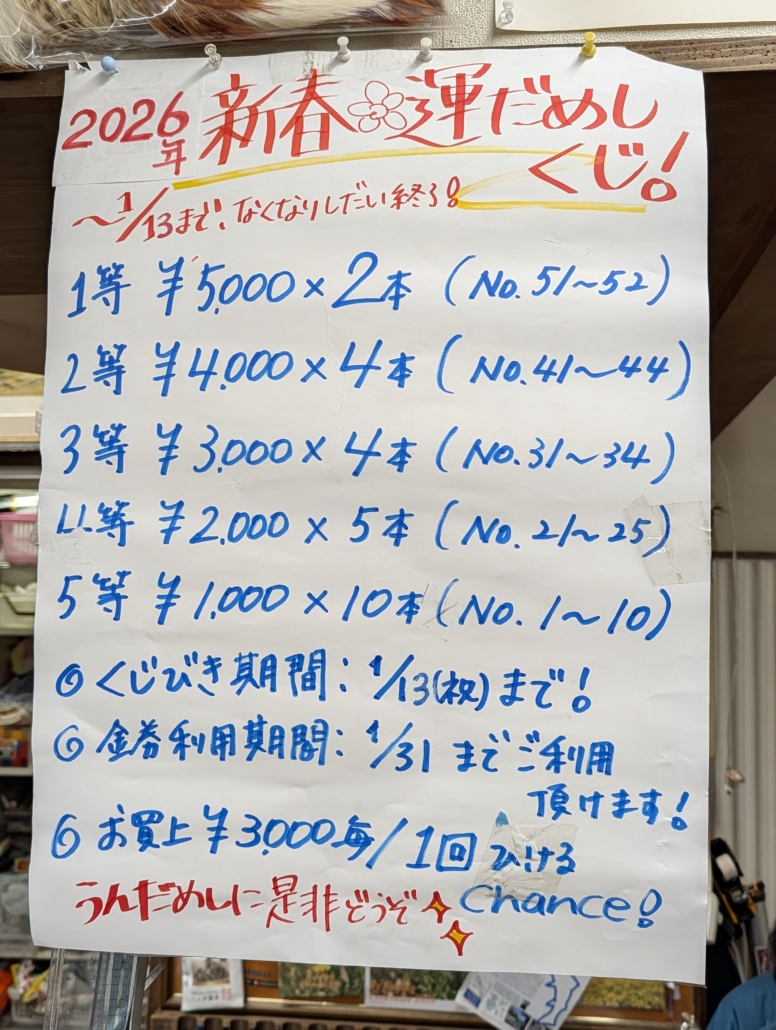 2026年 新春 運だめしくじ!
〜1/13まで、なくなりしだい終了!
1等 ¥5,000×2本 (No.51〜52)
2等 ¥4,000×4本 (No.41〜44)
3等 ¥3,000×4本 (No.31〜34)
4等 ¥2,000×5本 (No.21〜25)
5等 ¥1,000×10本 (No.1〜10)
◎くじびき期間:1/13(祝)まで!
◎金券利用期間:1/31までご利用
頂けます!
◎お買上¥3,000毎/1回ひける
Chance!
うんだめしに是非どうぞ